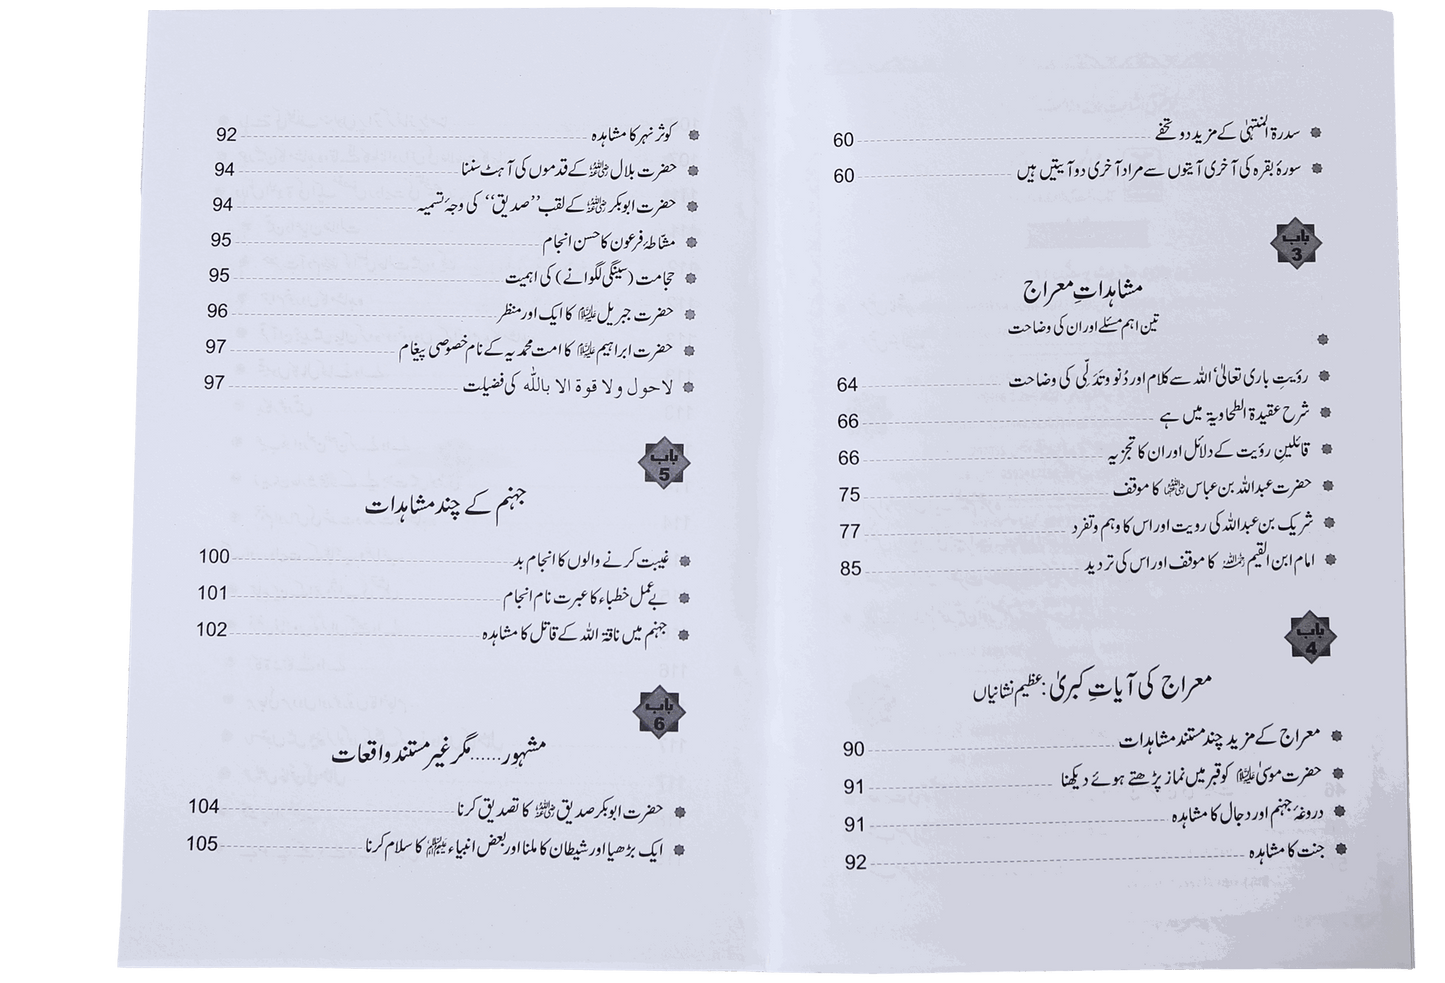 سدرۃ المنتہٰی کے مزید دو تحفے 60
سورۂ بقرہ کی آخری آیتوں سے مراد آخری دو آیتیں ہیں 60
باب 3
مشاہداتِ معراج
تین اہم مسئلے اور ان کی وضاحت
رؤیتِ باری تعالیٰ، اللہ سے کلام اور دُنو وتَدَلّی کی وضاحت 64
شرح عقیدۃ الطحاویۃ میں ہے 66
قائلینِ رؤیت کے دلائل اور ان کا تجزیہ 66
حضرت عبداللہ بن عباس رضی اللہ عنہما کا موقف 75
شریک بن عبداللہ کی رویت اور اس کا وہم وتفرد 77
امام ابن القیم رحمہ اللہ کا موقف اور اس کی تردید 85
باب 4
معراج کی آیاتِ کبریٰ: عظیم نشانیاں
معراج کے مزید چند مستند مشاہدات 90
حضرت موسیٰ علیہ السلام کو قبر میں نماز پڑھتے ہوئے دیکھنا 91
دروغۂ جہنم اور دجال کا مشاہدہ 91
جنت کا مشاہدہ 92
کوثر نہر کا مشاہدہ 92
حضرت بلال رضی اللہ عنہ کے قدموں کی آہٹ سننا 94
حضرت ابوبکر رضی اللہ عنہ کے لقب ”صدیق“ کی وجۂ تسمیہ 94
مشّاطۂ فرعون کا حسن انجام 95
حجامت (سینگی لگوانے) کی اہمیت 95
حضرت جبریل علیہ السلام کا ایک اور منظر 96
حضرت ابراہیم علیہ السلام کا امت محمدیہ کے نام خصوصی پیغام 97
لاحول ولا قوۃ الا باللہ کی فضیلت 97
باب 5
جہنم کے چند مشاہدات
غیبت کرنے والوں کا انجام بد 100
بے عمل خطباء کا عبرت نام انجام 101
جہنم میں ناقۃ اللہ کے قاتل کا مشاہدہ 102
باب 6
مشہور......مگر غیر مستند واقعات
حضرت ابوبکر صدیق رضی اللہ عنہ کا تصدیق کرنا 104
ایک بڑھیا اور شیطان کا ملنا اور بعض انبیاء علیہم السلام کا سلام کرنا 105